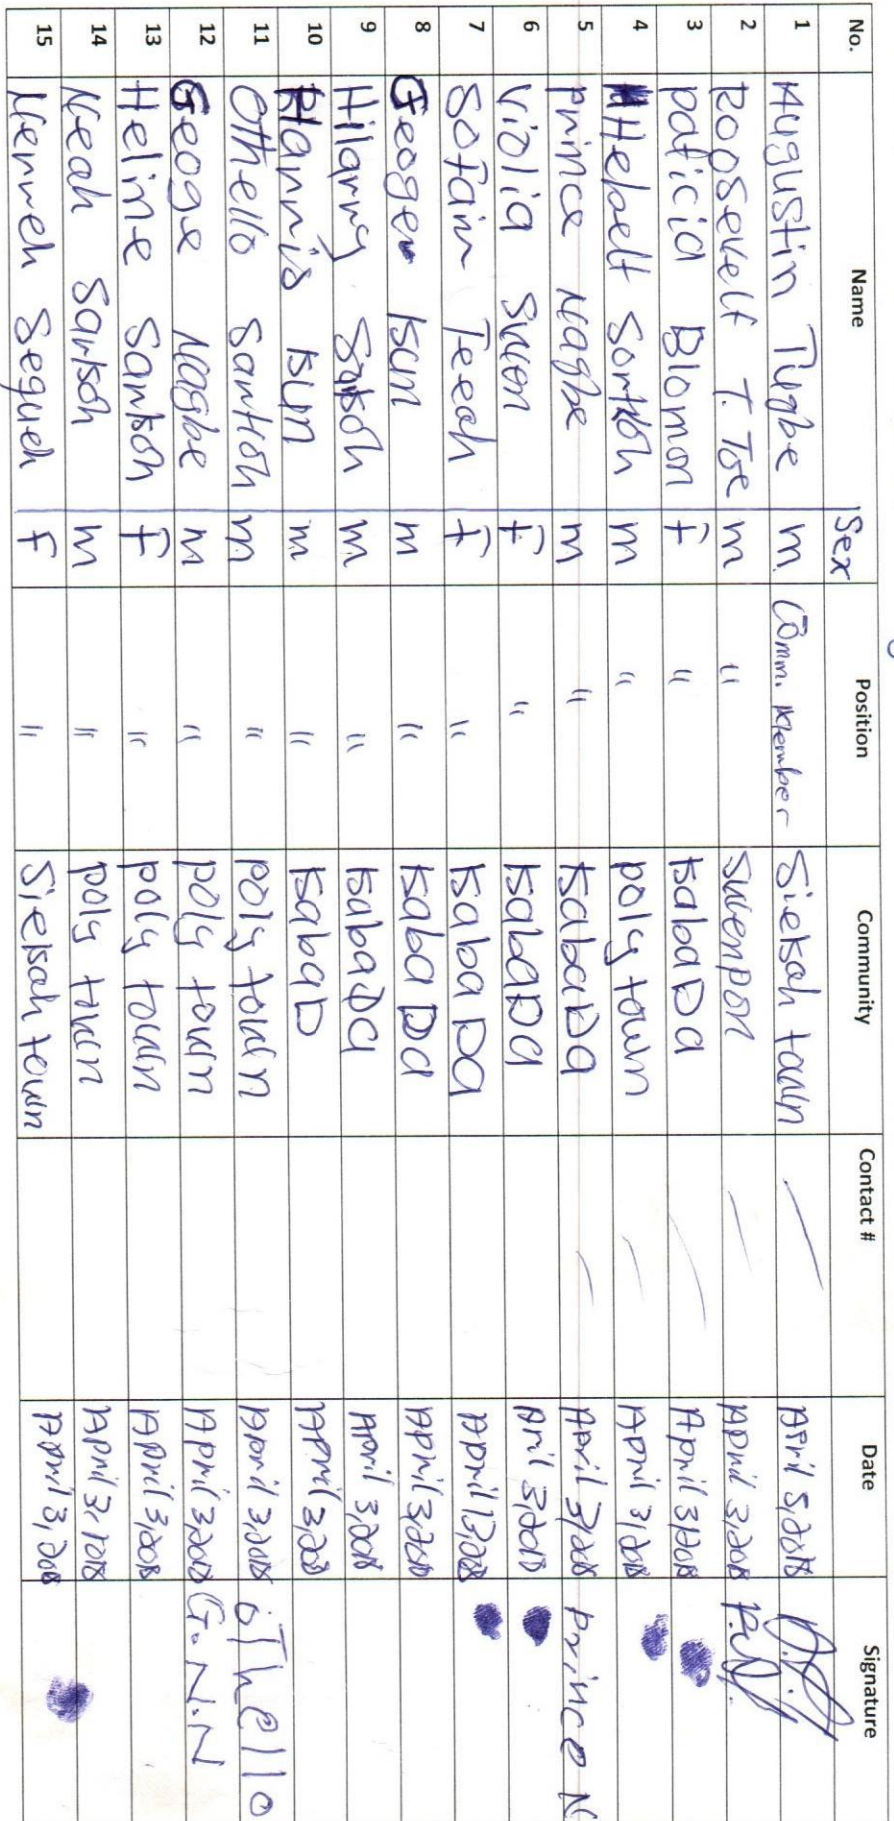 No. Name Sex Position Community Contact # Date Signature
1 Augustin Tugbe m. Comm. Member Siekah town April 3, 2018
2 Roosevelt T. Toe m " Swenpon April 3, 2018
3 paticia Blomon F " KabaDa April 3, 2018
4 Helbelt Sonkoh m " poly town April 3, 2018
5 prince Nagbe m " KabaDa April 3, 2018 Prince N
6 Violia Swen F " KabaDa Aril 3, 2018
7 Sofain Teeah F " KabaDa April 13, 2018
8 Geoger Kun m " KabaDa April 3, 2018
9 Hilarry Sarkoh m " KabaDa April 3, 2018
10 Hannis Kun m " KabaD April 3, 208
11 Othello Sarkoh m " poly town April 3, 2018 oThello
12 Geoge Nagbe m " poly town April 3, 2018 G.N.N
13 Heline Sarkoh F " poly town April 3, 2018
14 Neah Sarkoh m " poly town April 3, 2018
15 Nenweh Segueh F " Siekah town April 3, 2018